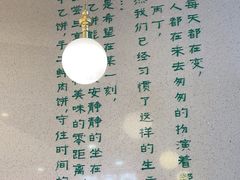 每天都在变，
人都在来去匆匆的扮演着
丙丁，
然我们已经习惯了这样的生
是希望在某一刻，
安静静的坐在
美味的零距离
乙饼，手工鲜肉饼，守住时间的